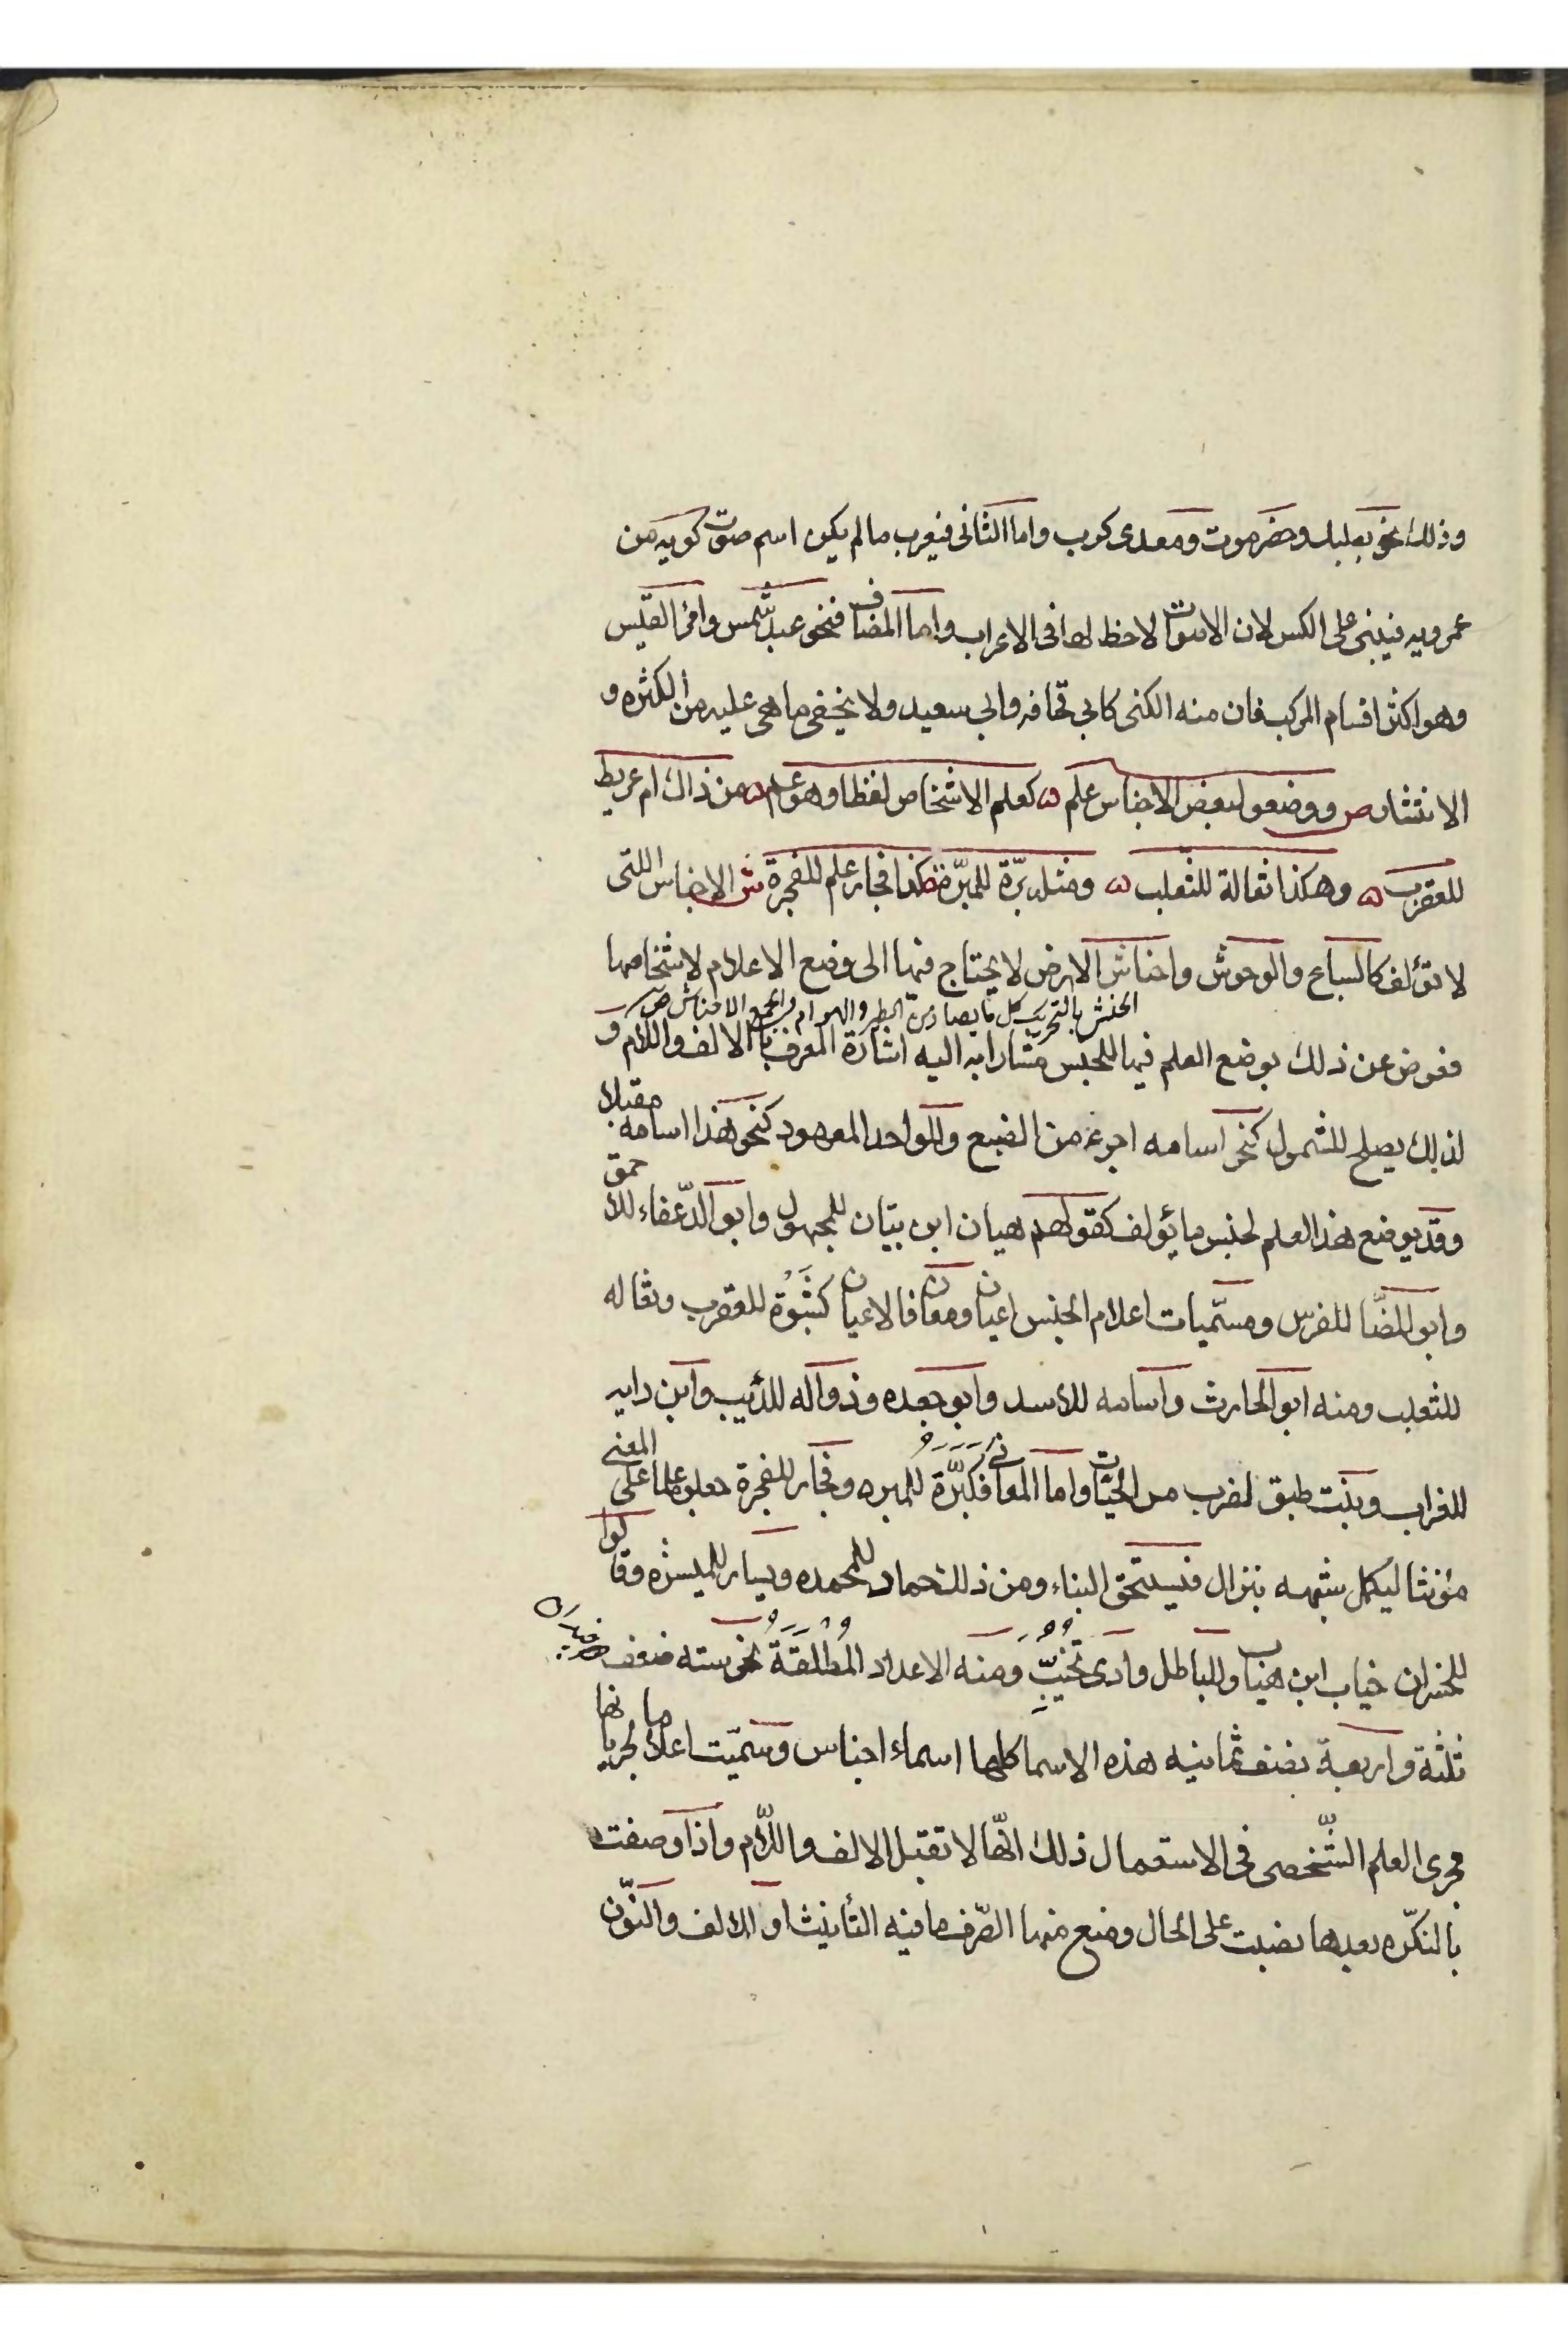 وذلك نحو بعلبك وحضرموت ومعدى كرب واما الثانى فيعرب مالم يكن اسم صوت كويه من
عمرويه فيبنى على الكسر لان الاصوات لاحظ لها فى الاعراب واما المضاف فنحو عبد شّمس وامرئ القيّس
وهو اكثر اقسام المركب فان منه الكنى كابى قحافه وابى سعيد ولا يخفى ما هى عليه من الكثره و
الانتشار ص ووضعوا لبعض الاجناس علم ۵ كعلم الاشخاص لفظا وهو عم ۵ من ذاك ام عريط
للعقرب ۵ وهكذا ثعالة للثعلب ۵ ومثله برّة للمبرّة كذا فجار علم للفجرة ش الاجناس اللتى
لا تؤلف كالسباع والوحوش واحناش الارض لا يحتاج فيها الى وضع الاعلام لاشخاصها
الحنش بالتحريك كل ما يصاد من الطير والهوام والجمع الاحناش ص
فعوض عن ذلك بوضع العلم فيها للجنس مشارا به اليه اشارة المعرف بالالف واللام و
لذلك يصلح للشمول كنحو اسامه اجرء من الضبع وللواحد المعهود كنحو هذا اسامه مقبلا
وقد يوضع هذا العلم لجنس ما يؤلف كقولهم هيان ابن بيّان للمجهول وابو الدّغفاء للاحمق
وابو المضّا للفرس ومسمّيات اعلام الجنس اعيان ومعان فالاعيان كشَبْوَة للعقرب وثعاله
للثعلب ومنه ابو الحارث واسامه للاسد وابو جعده وذواله للذئب وابن دايه
للغراب وبنت طبق لضرب من الحيّات واما المعانى فكبَرَّة للمبره وفجار للفجرة جعلوه علما على المعنى
مؤنثا ليكمل شبهه بنزال فيستحق البناء ومن ذلك حماد للمحمده ويسار للميسره وقالوا
للخسران خياب ابن هياب وللباطل وادى تُخُيِّبَ ومنه الاعداد المُطْلَقَةُ نحو سته ضعف ثلاثه
ثلثة واربعة نصف ثمانيه هذه الاسما كلها اسماء اجناس وسمّيت اعلاما لجريانها
مجرى العلم الشّخصى فى الاستعمال ذلك انّها لا تقبل الالف واللّام واذا وصفت
بالنكّره بعدها نصبت على الحال ومنع منها الصّرف ما فيه التأنيث او الالف والنّون